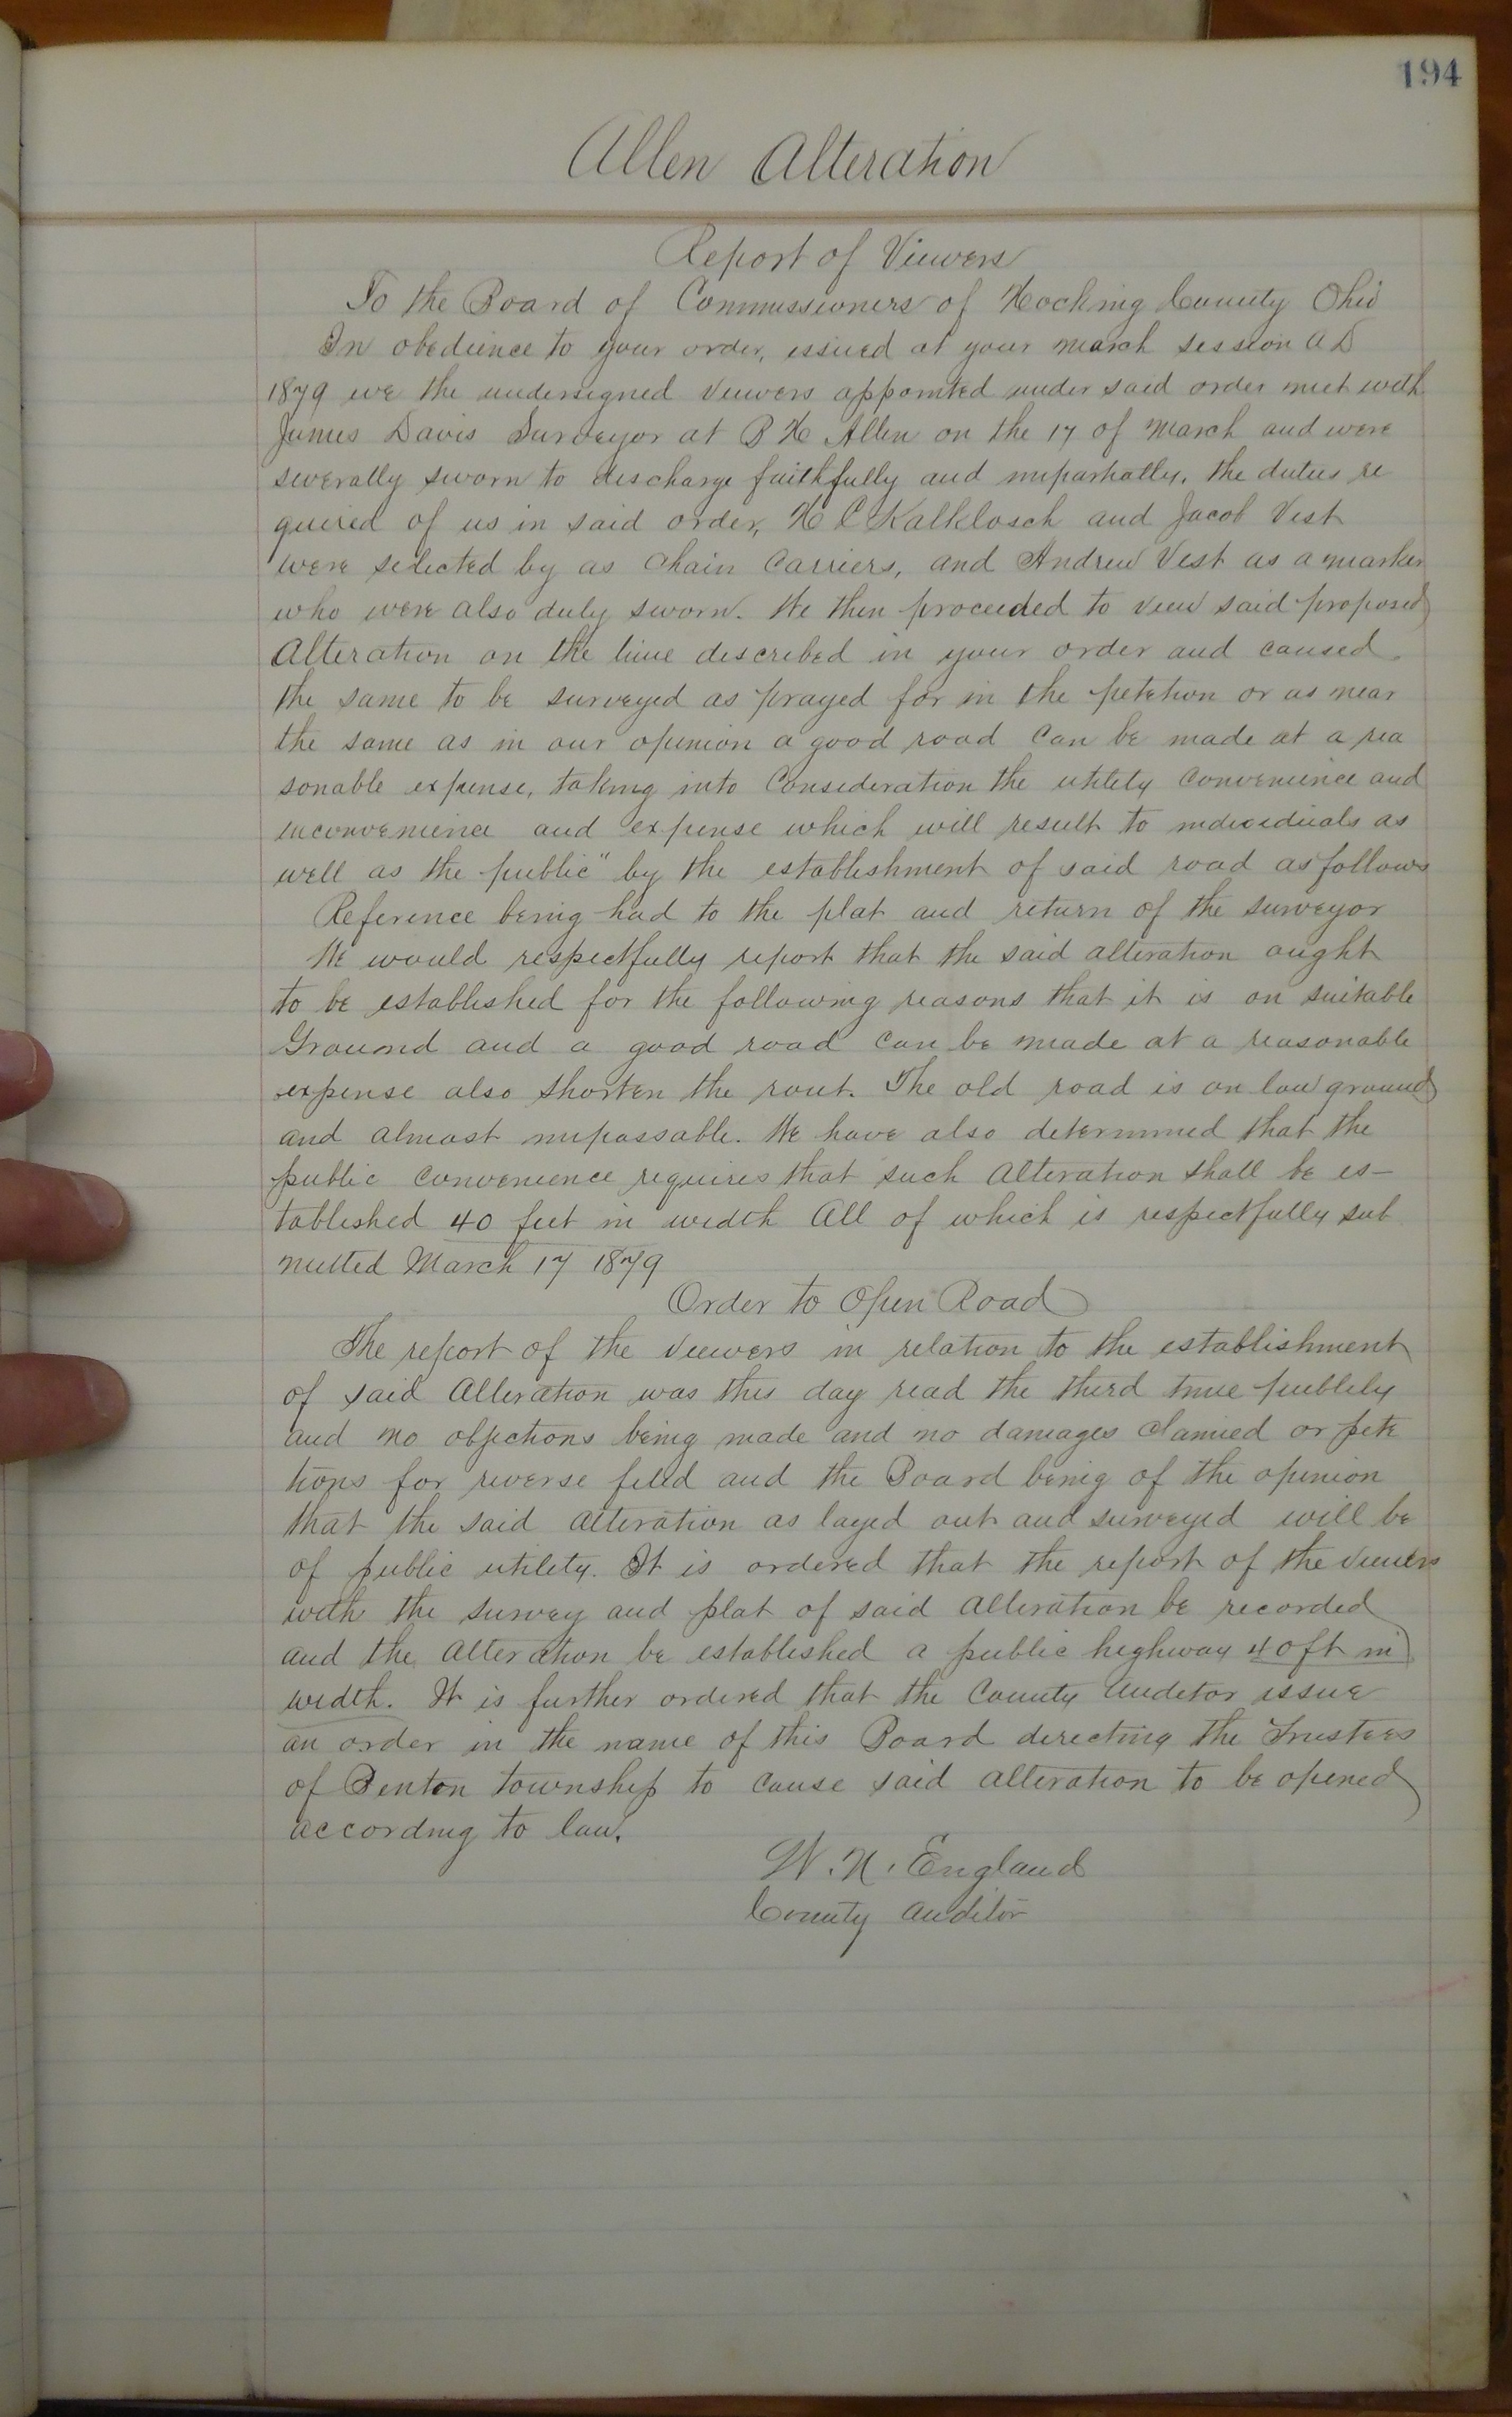 194
Allen Alteration
Report of Viewers
To the Board of Commissioners of Hocking County Ohio
In obedience to your order, issued at your march session A D
1879 we the undersigned viewers appointed under said order met with
James Davis Surveyor at B H Allen on the 17 of March and were
severally sworn to discharge faithfully and impartially, the duties re
quired of us in said order, H C Kalklosch and Jacob Vest
were selected by as chain carriers, and Andrew Vest as a marker
who were also duly sworn. We then proceeded to view said proposed
Alteration on the line described in your order and caused
the same to be surveyed as prayed for in the petetion or as near
the same as in our opinion a good road can be made at a rea
sonable expense, taking into Consideration the utility convenience and
inconvenience and expense which will result to individuals as
well as the public" by the establishment of said road as follows
Reference being had to the plat and return of the surveyor
We would respectfully report that the said alteration ought
to be established for the following reasons that it is on suitable
Ground and a good road can be made at a reasonable
expense also shorten the rout. The old road is on low ground
and almost impassable. We have also determined that the
public convenience requires that such alteration shall be es-
tablished 40 feet in width All of which is respectfully sub
mitted March 17 1879
Order to Open Road
The report of the viewers in relation to the establishment
of said Alteration was this day read the third time publily
and no objections being made and no damages claimed or peti
tions for reverse filed and the Board being of the opinion
that the said alteration as layed out and surveyed will be
of public utility. It is ordered that the report of the viewers
with the survey and plat of said alteration be recorded
and the alteration be established a public highway 40 ft in
width. It is further ordered that the County Auditor issue
an order in the name of this Board directing the Trustees
of Benton township to cause said alteration to be opened
according to law.
W. H. England
County Auditor